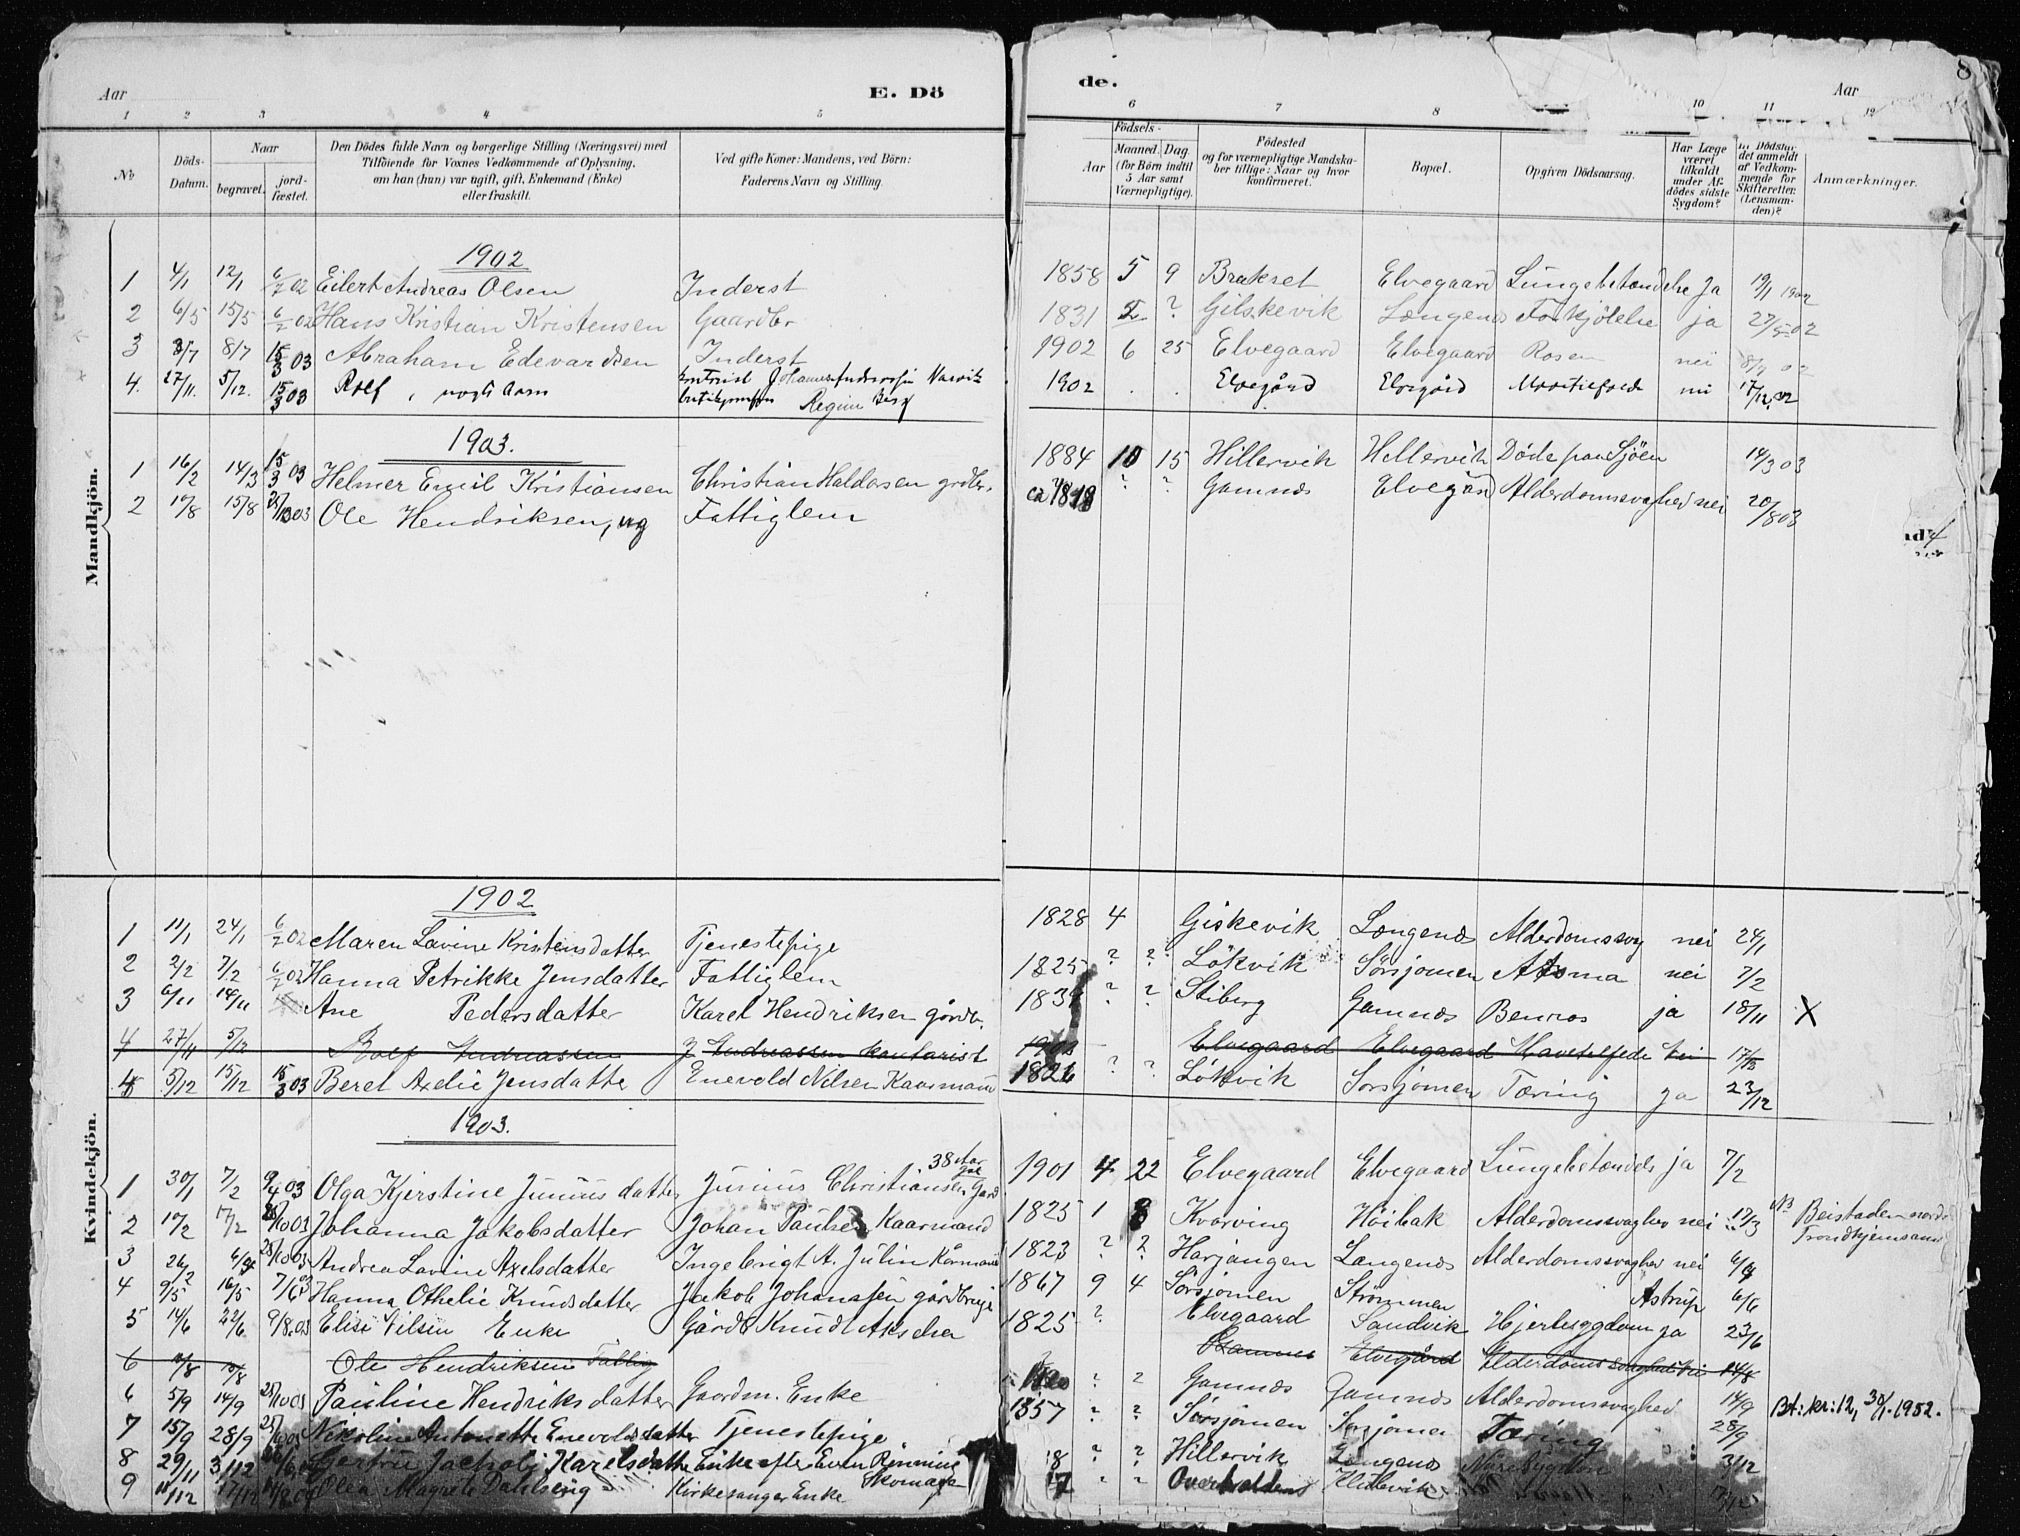 Aar
E. Dö
de.
Aar
8
1 2 3 4 5 6 7 8 10 11 12
No
Döds-Datum.
Naar
begravet.
jordfæstet.
Den Dödes fulde Navn og borgerlige Stilling (Næringsvei) med
Tilföiende for Voxnes Vedkommende af Oplysning,
om han (hun) var ugift, gift, Enkemand (Enke)
eller fraskilt.
Ved gifte Koner: Mandens, ved Börn:
Faderens Navn og Stilling.
Födsels-
Aar
Maaned. Dag
(for Börn indtil
5 Aar samt
Værnepligtige).
Födested
og for værnepligtige Mandska-
ber tillige: Naar og hvor
konfirmeret.
Bopæl.
Opgiven Dödsaarsag.
Har Læge
været
tilkaldt
under Af-
dödes sidste
Sygdom?
det anmeldt
af Vedkom-
mende for
Skifteretten
(Lensman-
den)?
Anmærkninger.
Mandkjön.
1902
1 4/1 12/1 6/7 02 Eilert Andreas Olsen Inderst 1858 5 9 Brakset Elvegaard Lungebetændelse Ja 19/1 1902
2 6/5 15/5 6/7 02 Hans Kristian Kristensen Gaardbr 1831 ? Gilskevik Længenes Forkjölelse ja 27/5 02
3 3/7 8/7 15/3 03 Abraham Edevardsen Inderst 1902 6 25 Elvegaard Elvegaard Rosen nei 8/7 02
4. 27/11. 5/12. 15/3 03 Rolf, uægte barn Johannes Andreassen Narvik 1902 . . Elvegård Elvegård nei 17/12.02
Regine Berg
1903.
1 16/2 14/3 15/3 03 Helmer Emil Kristiansen Christian Haldorsen grdbr. 1884 10 15 Hillervik Hellervik Döde paa Sjöen 14/3 03
2 10/8 15/8 25/10 03 Ole Hendriksen, ug Fattiglem ca 1818 ? ? Gamnes Elvegård Alderdomssvaghed nei 20/8 03
Kvindekjön.
1902
1 11/1 24/1 6/7 02 Maren Lavine Kristensdatter Tjenestepige 1828 4 Giskevik Længenes Alderdomssvag nei 24/1
2 2/2 7/2 6/7 02 Hanna Petrikke Jensdatter Fattiglem 1825 ? ? Lökvik Sörsjomen Astma nei 7/2
3 6/11 14/11 Ane Pedersdatter Karel Hendriksen gårdb. ? ? Stiberg Gamnes Benros ja 18/11 X
4 27/11 5/12 Rolf Andreassen J Andreassen kontorist 1902 Elvegaard Elvegaard nei 17/12
4 5/12 15/12 15/3 03 Beret Axelie Jensdatter Enevold Nilsen Kaarmand 1826 ? ? Lökvik Sorsjomen Tæring ja 23/12
1903.
38 Aar
1 30/1 7/2 9/4 03 Olga Kjerstine Juniusdatter Junius Christiansen Gard 1901 4 22 Elvegaard Elvegaard Lungebetændels ja 7/2
2 10/2 17/2 25/10 03 Johanna Jakobsdatter Johan Paulsen Kaarmand 1825 1 8 Kvarving Höibak Alderdomssvaghed nei 17/3 Beistaden nordre
Trondhjemsamt
3 26/2 6/4 25/10 03 Andrea Lavine Axelsdatter Ingebrigt A. Julin Kårmand 1823 ? ? Harjangen Langenes Alderdomssvaghed nei 6/4
4 9/5 16/5 7/6 03 Hanna Othelie Knudsdatter Jakob Johansen gårdbruger 1867 9 4 Sörsjomen Strömmen Astrup 6/6
5 14/6 22/6 9/8.03 Elise Nilsen Enke Gårdb Knud Akselsen 1825 ? Elvegaard Sandvik Hjertesygdom ja 23/6
6 10/8 15/8 Ole Hendriksen Fattig Gamnes Elvegård Alderdomssvaghed nei 14/8
6 5/9 14/9 25/10 03 Pauline Hendriksdatter Gaardm. Enke ? ? Gamnes Gamnes Alderdomssvaghed 14/9 Bt: kr: 12, 30/1.1952.
7 15/9 28/9 25/10 03 Nikoline Antonette Enevoldsdatter Tjenestepige 1857 ? ? Sörsjomen Sorsjomen Tæring 28/9
8 29/11 3/12 Gertrue Jacholi Karelsdatter Enke efter Even Rönning Skomager 18 ? ? Hillervik Längenes Nyresygdom 3/12
9 10/12 17/12 Olea Magrete Dahlseng Kirkesanger Enke 17 " " Overhalden Hillervik 17/12